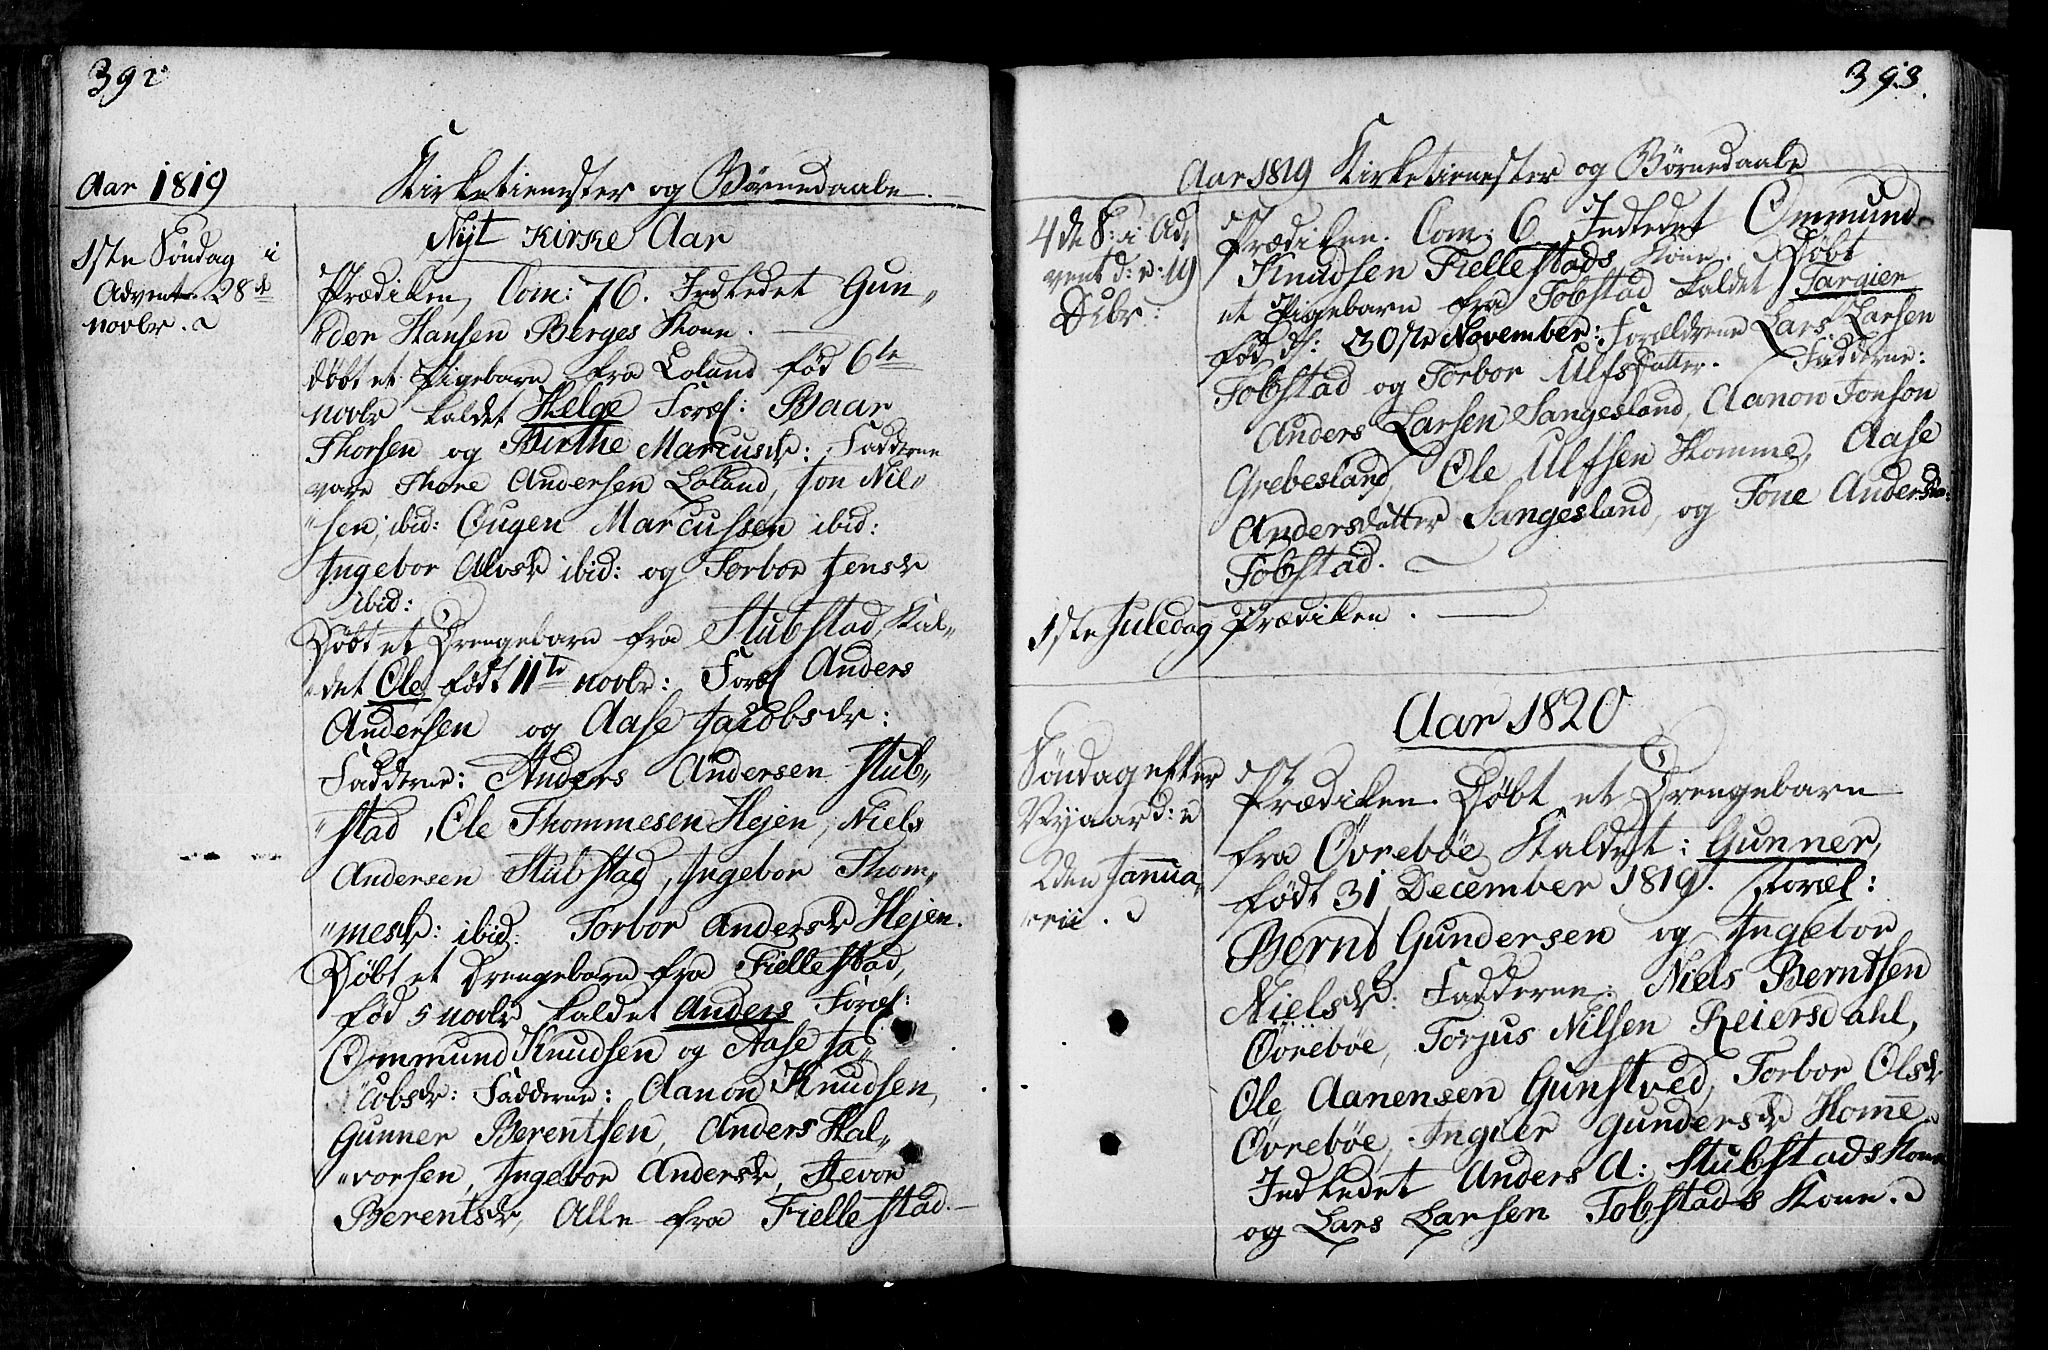 392
Aar 1819
Kirketienester og Børnedaabe.
1ste Søndag i
Advent. 28de
novbr.
Nÿt Kirke Aar
Prædiken, Com: 76. Indledet Gun„
„der Hansen Berges Kone.
døbt et Pigebarn fra Loland fød 6te
novbr kaldet Helge Foræl: Baar
Thorsen og Birthe Marcusdr: Fadderne
vare Thore Andersen Loland, Jon Nil„
„sen, ibid: Ougen Marcussen ibid:
Ingebor Alvsdr ibid: og Torbor Jensdr
ibid:
Døbt et Drengebarn fra Stubstad, kal„
„det Ole, født 11te novbr: Foræl Anders
Andersen og Aase Jacobsdr:
Fadderne: Anders Andersen Stub„
„stad, Ole Thommesen Hejen, Niels
Andersen Stubstad, Ingebor Thom„
„mesdr: ibid: Torbor Andersdr Hejen.
Døbt et Drengebarn fra Fiellestad,
fød 5 novbr kaldet Anders Foræl:
Ommund Knudsen og Aase Ja„
„cobsdr: Fadderne: Aanon Knudsen,
Gunner Berentsen, Anders Hal„
„vorsen, Ingebor Andersdr, Stevor
Berentsdr, Alle fra Fiellestad.
393.
Aar 1819 Kirketienester og Børnedaabe
4de S: i Ad„
vent d: 19
Dcbr:
Prædiken. Com: 6 Indledet Ommund
Knudsen Fiellestads Kone. Døbt
et Pigebarn fra Tobstad kaldet Targier
fød d: 30ste November: Forældrene Lars Larsen
Tobstad og Torbor Ulfsdatter. Fadderne:
Anders Larsen Sangesland, Aanon Jonson
Grebesland, Ole Ulfsen Homme, Aase
Andersdatter Sangesland, og Tone Andersda:
Tobstad.
1ste Juledag Prædiken.
Aar 1820
Søndag efter
Nyaar d:
2den Janua„
rii.
Prædiken. Døbt et Drengebarn
fra Övrebøe Kaldet: Gunner,
født 31 December 1819. Foræl:
Bernt Gundersen og Ingebor
Nielsdr: Fadderne: Niels Berntsen
Övrebøe, Torjus Nilsen Reiersdahl,
Ole Aanensen Gunstved, Torbor Olsdr
Övrebøe, Ingier Gundersdr Home
Indledet Anders A: Stubstads Kone
og Lars Larsen Tobstads Kone.